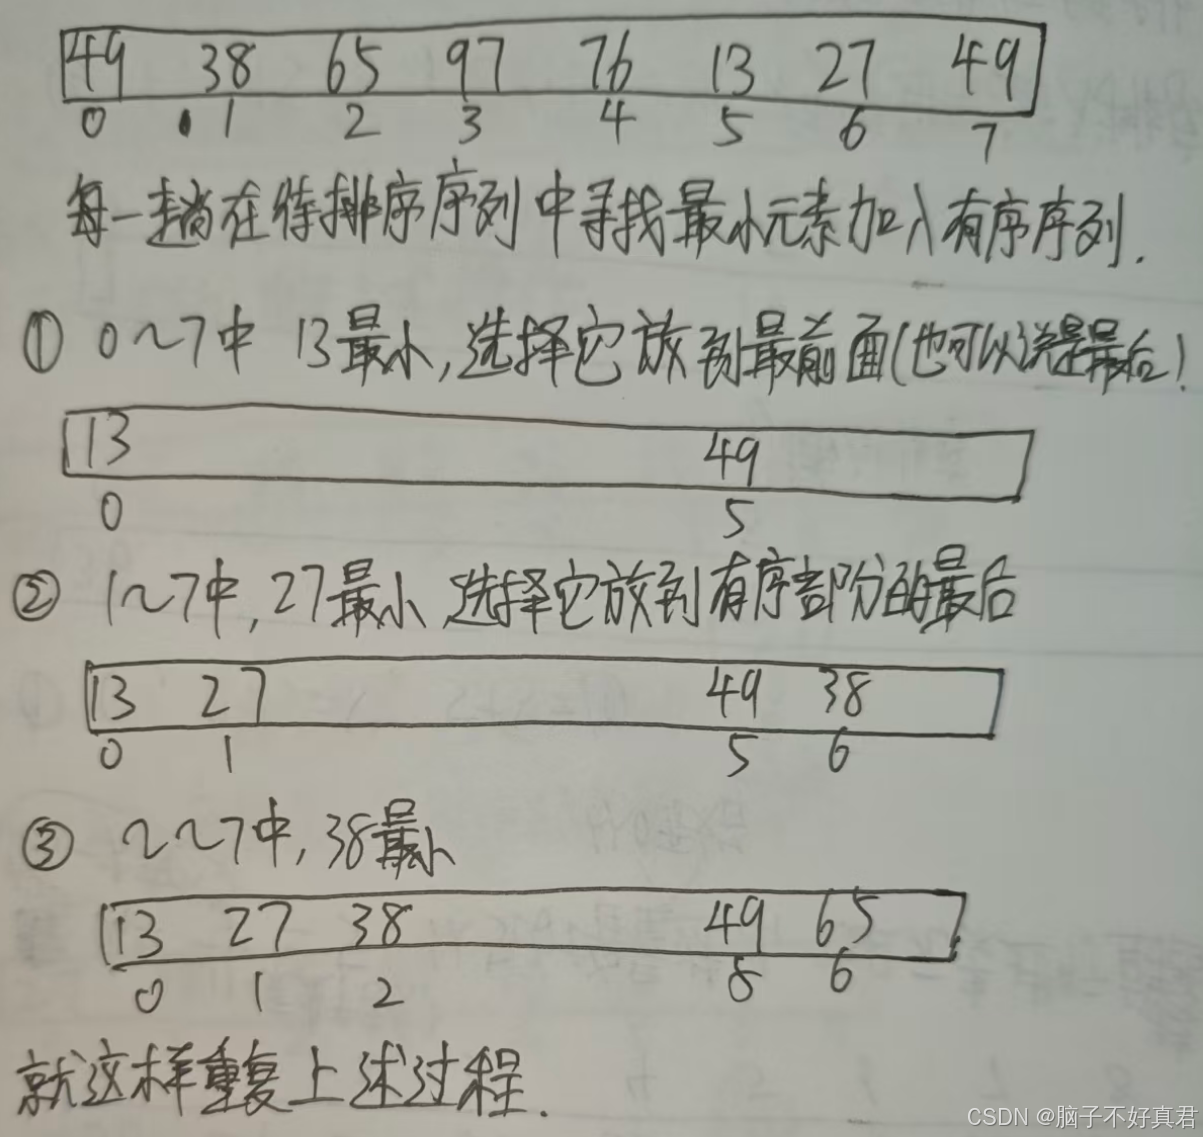 49 38 65 97 76 13 27 49
0 1 2 3 4 5 6 7
每一趟在待排序序列中寻找最小元素加入有序序列.
① 0~7中 13最小,选择它放到最前面(也可以说是最后)
13 49
0 5
② 1~7中,27最小,选择它放到有序部分的最后
13 27 49 38
0 1 5 6
③ 2~7中,38最小
13 27 38 49 65
0 1 2 5 6
就这样重复上述过程.
CSDN @脑子不好真君